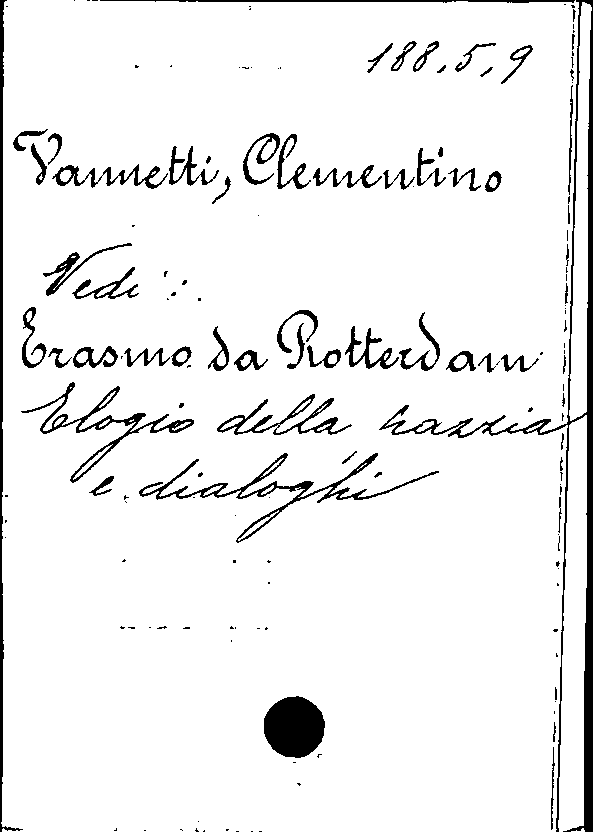 188.5,9
Vannetti, Clementino
Vedi:
Erasmo da Rotterdam
Elogio della pazzia
e dialoghi